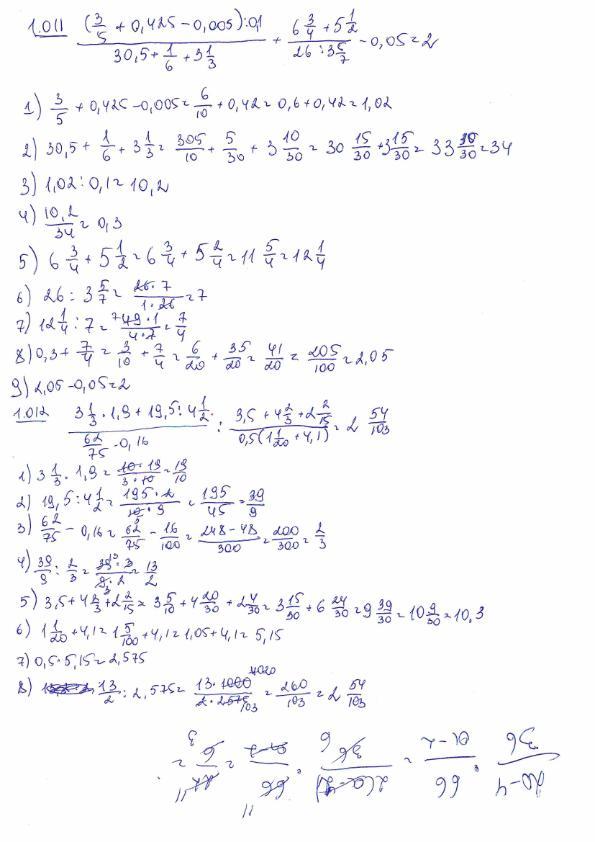 1.011 ((3/5 + 0,425 - 0,005) : 0,1)/(30,5 + 1/6 + 3 1/3) + (6 3/4 + 5 1/2)/(26 : 3 5/7) - 0,05 = 2
1) 3/5 + 0,425 - 0,005 = 6/10 + 0,42 = 0,6 + 0,42 = 1,02
2) 30,5 + 1/6 + 3 1/3 = 305/10 + 5/30 + 3 10/30 = 30 15/30 + 3 15/30 = 33 30/30 = 34
3) 1,02 : 0,1 = 10,2
4) 10,2/34 = 0,3
5) 6 3/4 + 5 1/2 = 6 3/4 + 5 2/4 = 11 5/4 = 12 1/4
6) 26 : 3 5/7 = 26·7/1·26 = 7
7) 12 1/4 : 7 = 49·1/4·7 = 7/4
8) 0,3 + 7/4 = 3/10 + 7/4 = 6/20 + 35/20 = 41/20 = 205/100 = 2,05
9) 2,05 - 0,05 = 2
1.012 (3 1/3 · 1,9 + 19,5 : 4 1/2)/(62/75 - 0,16) : (3,5 + 4 2/3 + 2 2/15)/(0,5(1 1/20 + 4,1)) = 2 54/103
1) 3 1/3 · 1,9 = 10·19/3·10 = 19/10
2) 19,5 : 4 1/2 = 195·2/10·9 = 195/45 = 39/9
3) 62/75 - 0,16 = 62/75 - 16/100 = 248-48/300 = 200/300 = 2/3
4) 39/9 : 2/3 = 39·3/9·2 = 13/2
5) 3,5 + 4 2/3 + 2 2/15 = 3 5/10 + 4 20/30 + 2 4/30 = 3 15/30 + 6 24/30 = 9 39/30 = 10 9/30 = 10,3
6) 1 1/20 + 4,1 = 1 5/100 + 4,1 = 1,05 + 4,1 = 5,15
7) 0,5 · 5,15 = 2,575
8) 13/2 : 2,575 = 13·1000/2·2575 = 260/103 = 2 54/103